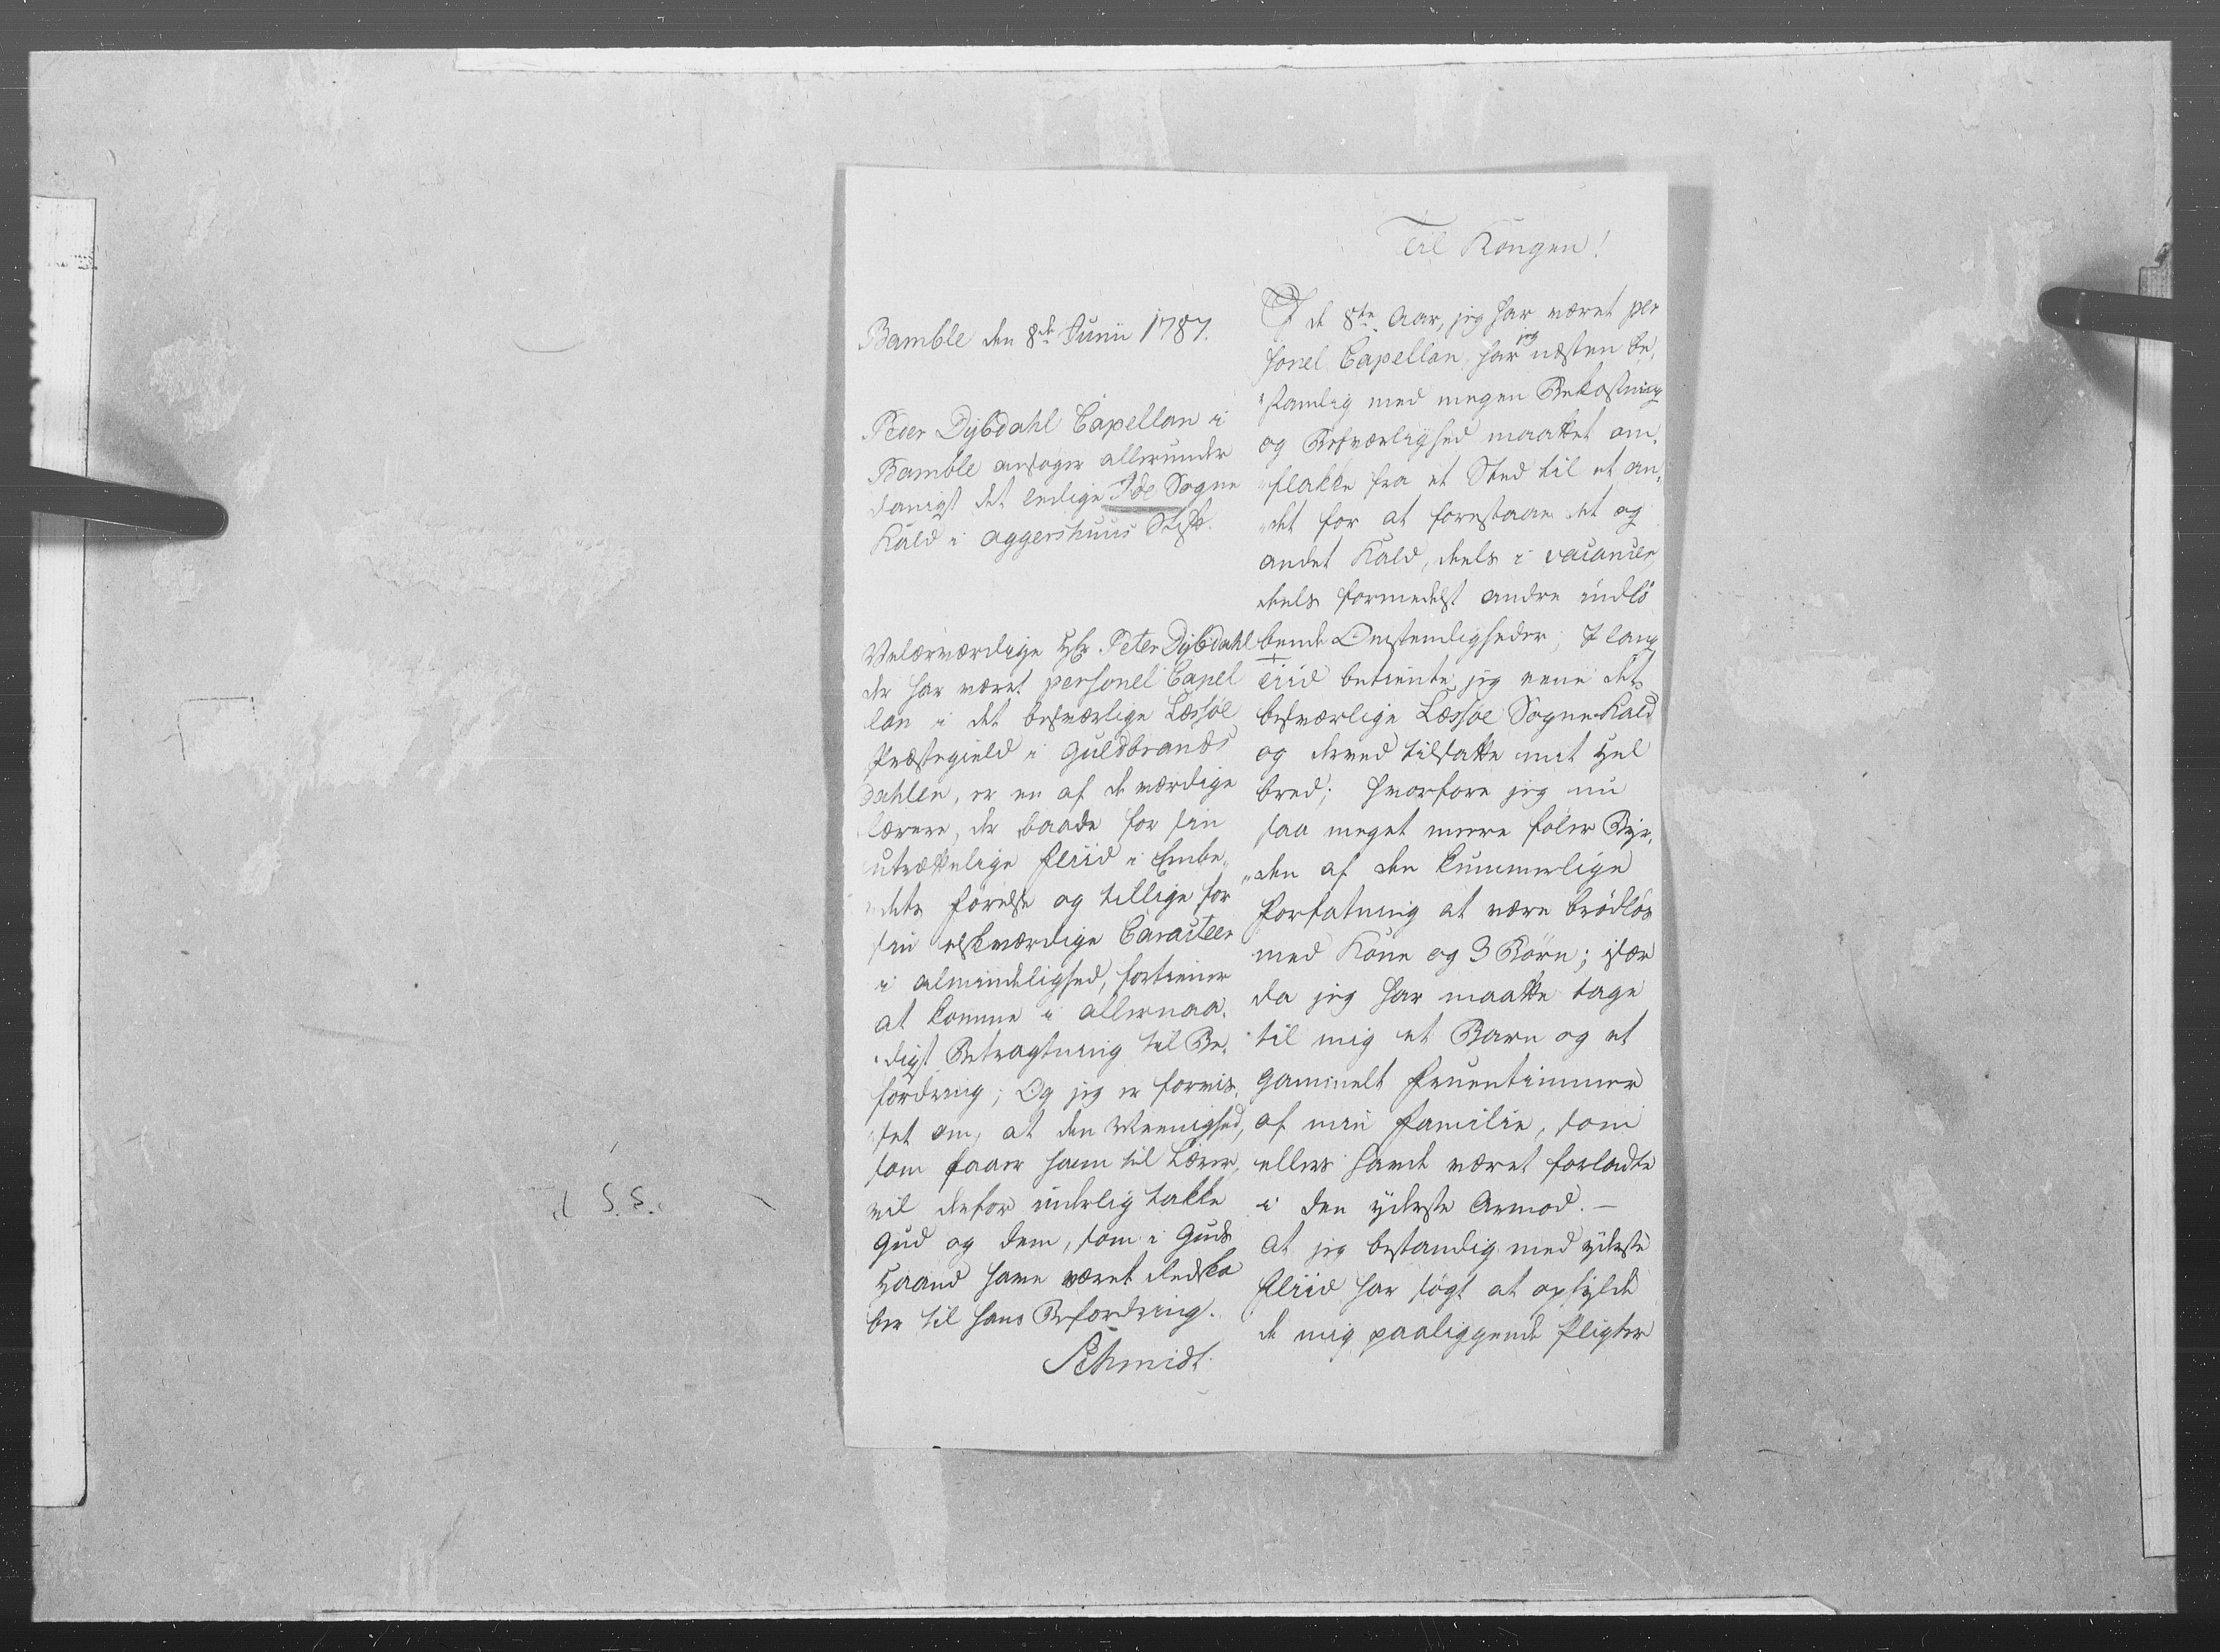 Til Kongen!
Bamble den 8de Junii 1787.
Peter Dybdahl Capellan i
Bamble ansøger allerunder
danigst det ledige Ide Sogne
Kald i Aggershuus Stift.
Velærværdige Hr. Peter Dybdahl
der har været personel Capel
lan i det besværlige Læssøe
Præstegield i Guldbrands
Dahlen, er en af de værdige
Lærere, der baade for sin
utrættelige Fliid i Embe„
„dets Førelse og tillige for
sin elskværdige Caracteer
i Almindelighed, fortiener
at komme i allernaa„
„digst Betragtning til Be„
fordring; Og jeg er forvis„
„set om, at den Meenighed,
som faaer ham til Lærer,
vil derfor inderlig takke
Gud og dem, som i Guds
Haand have været Redska
ber til hans Befordring.
Schmidt.
I de 8te Aar, jeg har været per
sonel Capellan har jeg næsten be„
„standig med megen Bekostning
og Besværlighed maattet om„
„flakke fra et Sted til et an„
„det for at forestaae et og
andet Kald, deels i vacancer,
deels formedelst andre indlø
bende Omstændigheder; I lang
Tiid betiente jeg eene det
besværlige Læssøe Sogne-Kald
og derved tilsatte mit Hel
bred; hvorfore jeg nu
saa meget meere føler Byr„
„den af den kummerlige
Forfatning at være brødløs
med Kone og 3 Børn; især
da jeg har maattet tage
til mig et Barn og et
gammelt Fruentimmer
af min Familie, som
ellers havde været forladte
i den yderste Armod. —
At jeg bestandig med yderste
Fliid har søgt at opfylde
de mig paaliggende Pligter